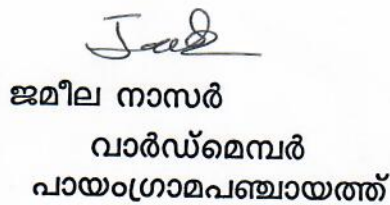 ജമീല നാസർ
വാർഡ്മെമ്പർ
പായംഗ്രാമപഞ്ചായത്ത്